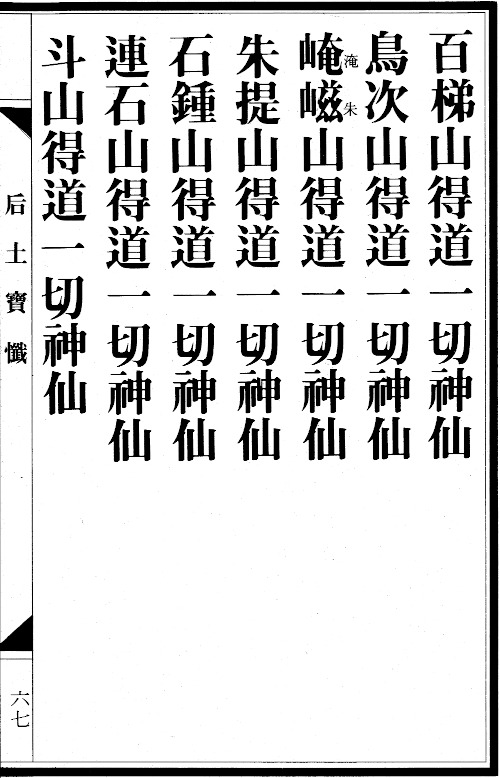 百梯山得道一切神仙
鳥次山得道一切神仙
崦嵫山得道一切神仙
淹朱
朱提山得道一切神仙
石鍾山得道一切神仙
連石山得道一切神仙
斗山得道一切神仙
后土寶懺
六七